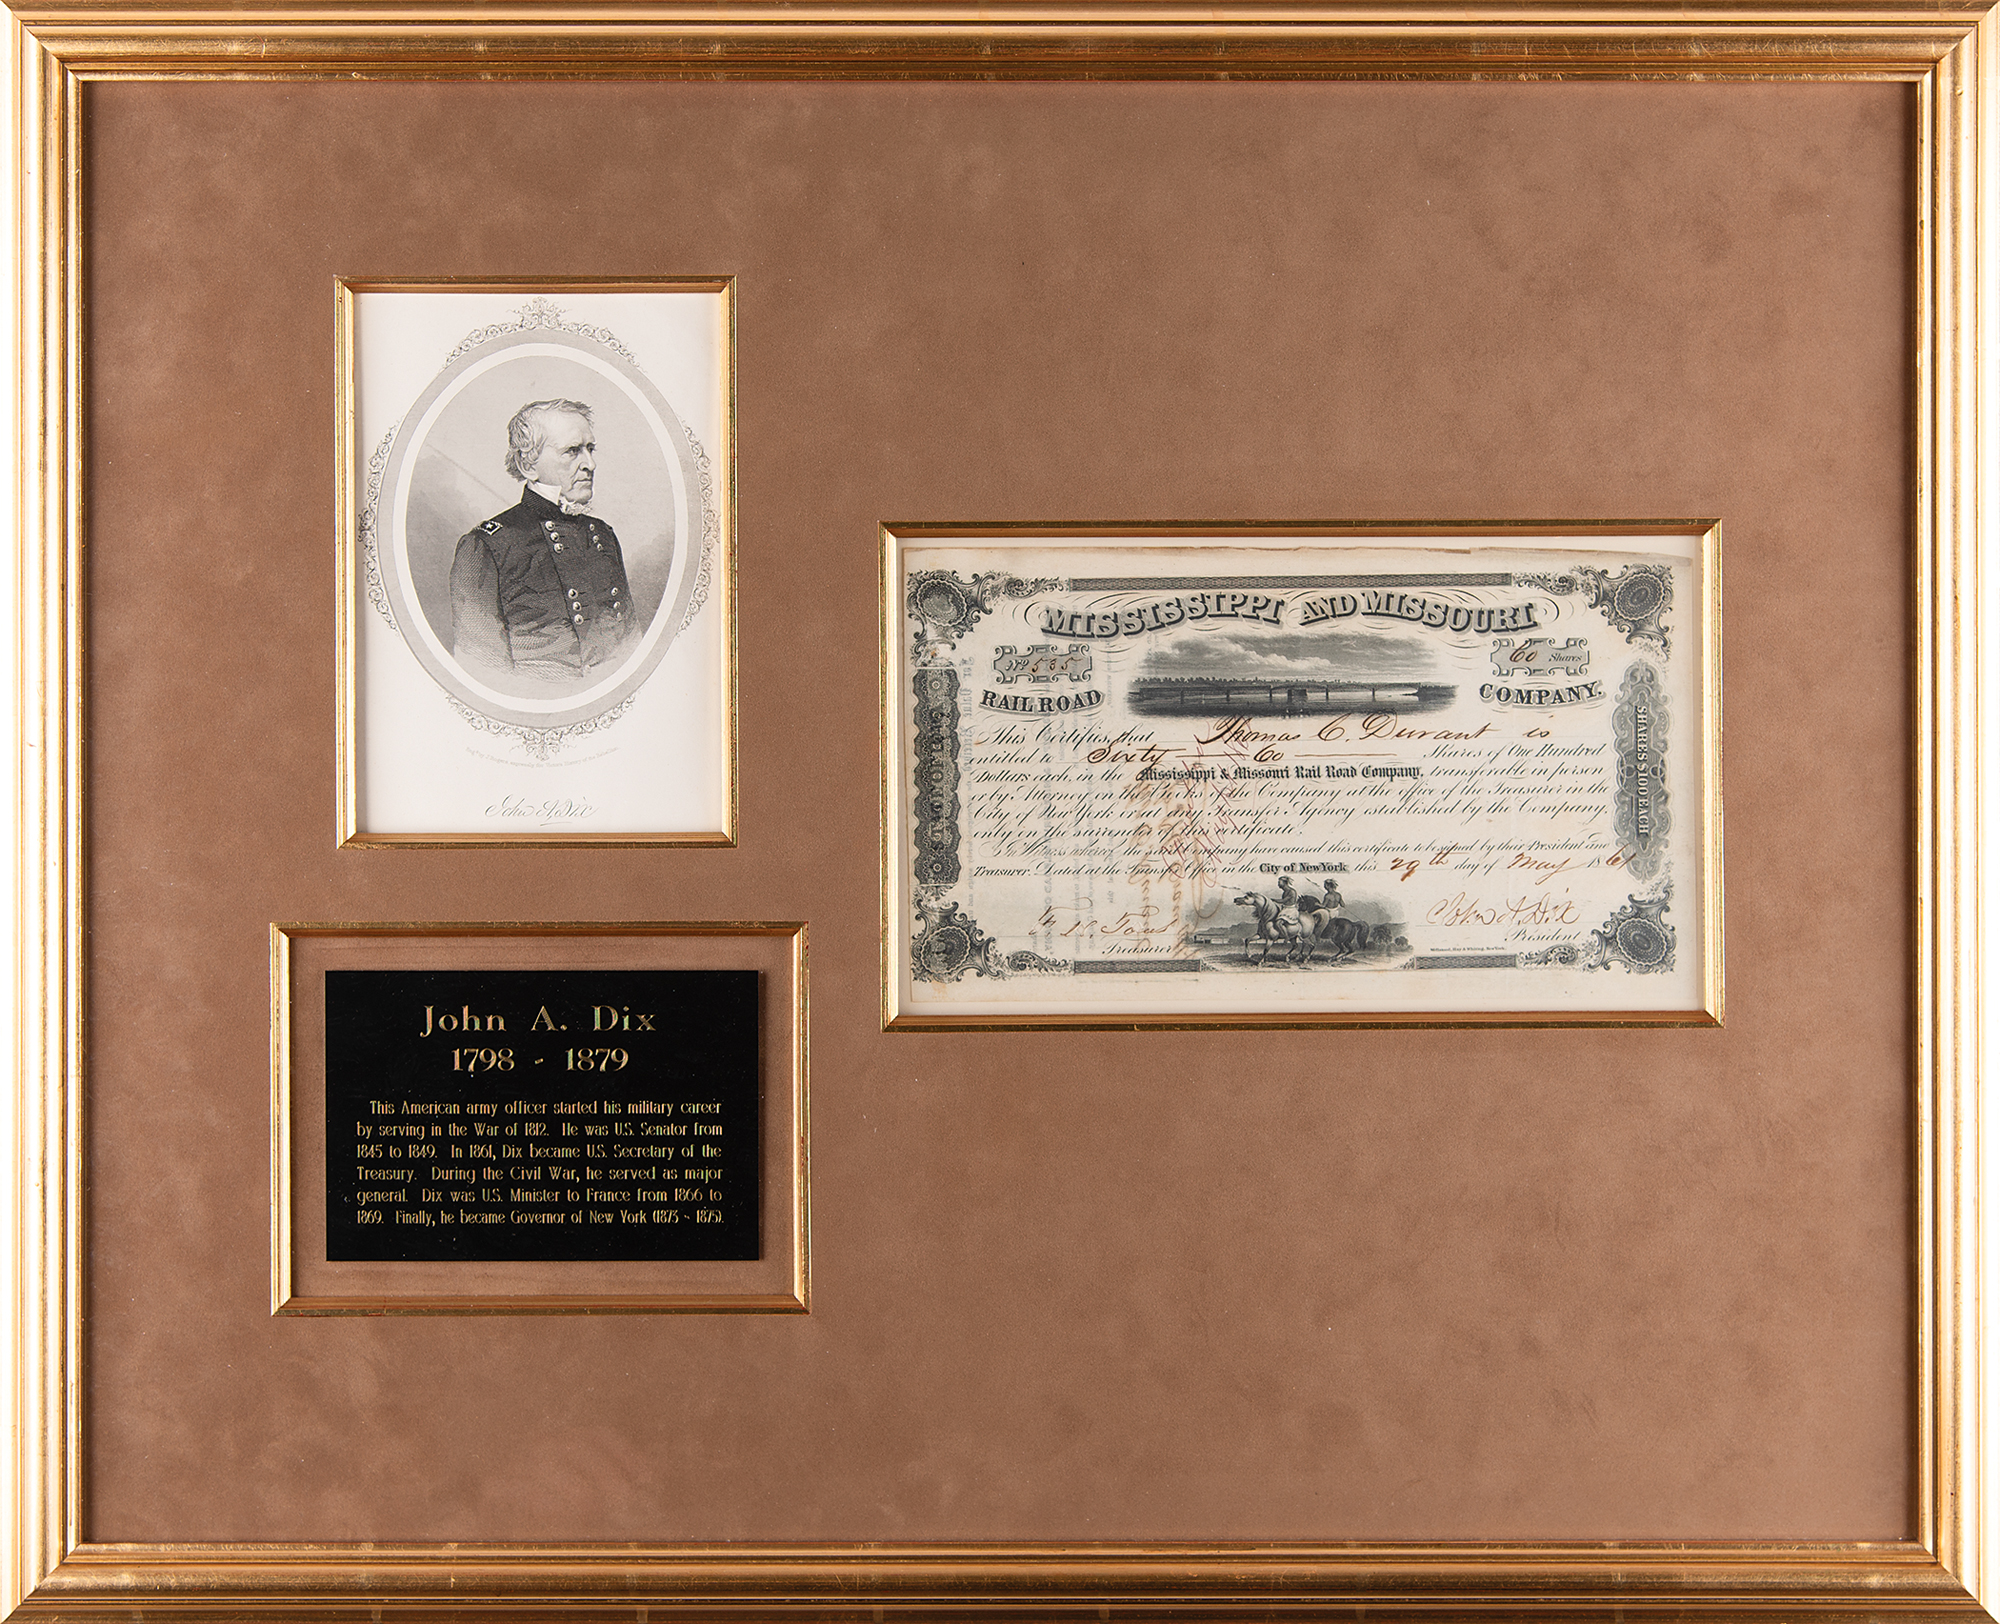 John A. Dix
John A. Dix
1798 - 1879
This American army officer started his military career
by serving in the War of 1812. He was U.S. Senator from
1845 to 1849. In 1861, Dix became U.S. Secretary of the
Treasury. During the Civil War, he served as major
general. Dix was U.S. Minister to France from 1866 to
1869. Finally, he became Governor of New York (1873 - 1875).
MISSISSIPPI AND MISSOURI
No 535
60 Shares
RAIL ROAD
COMPANY.
This Certifies, that Thomas C. Durant is
entitled to Sixty 60 Shares of One Hundred
Dollars each, in the Mississippi & Missouri Rail Road Company, transferable in person
or by Attorney on the Books of the Company at the office of the Treasurer in the
City of New York or at any Transfer Agency established by the Company,
only on the surrender of this certificate.
In Witness whereof the said Company have caused this certificate to be signed by their President and
Treasurer. Dated at the Transfer Office in the City of New York this 29th day of May 1861
John A. Dix
Treasurer
President
SHARES $100 EACH